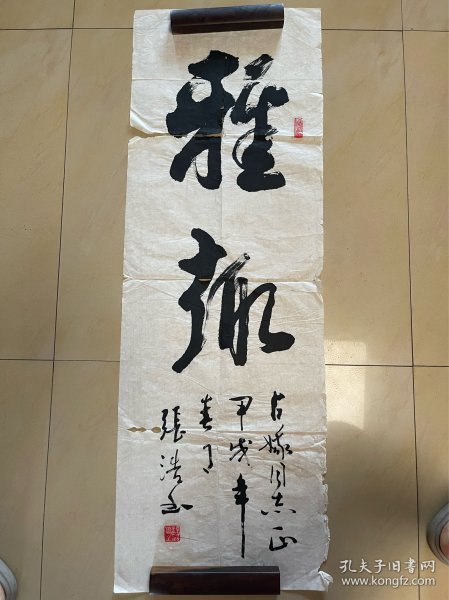 雅
趣
占娥同志正
甲戌年
春月
張浩書
孔夫子旧书网
www.kongfz.com